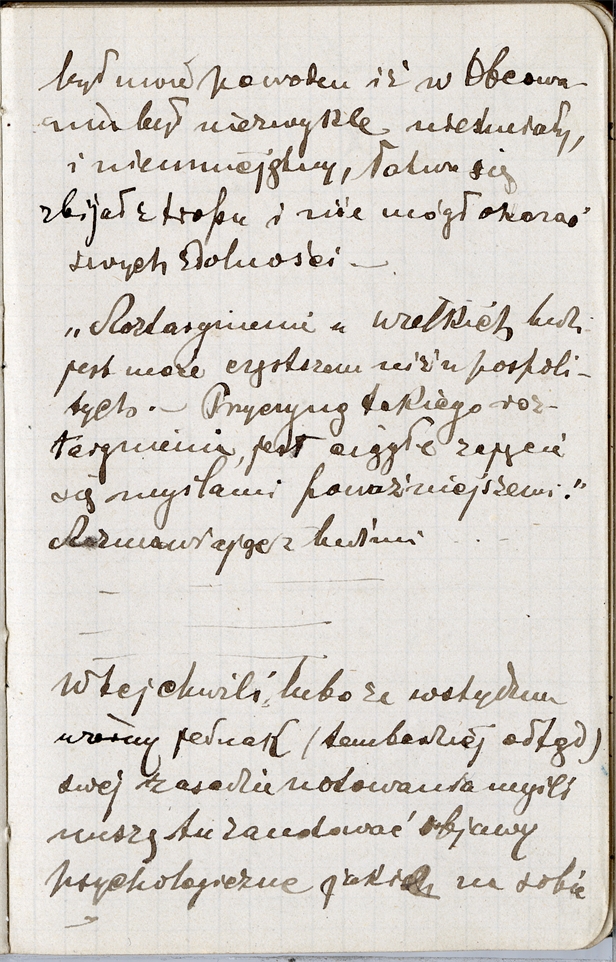 był może powodem iż w Obcowa-
niu był niezwykle nieśmiały,
i nieumiejętny, łatwo się
zbijał z tropu i nie mógł okazać
swych zdolności —
„Roztargnienie u wielkich ludzi
jest może częstszem niż u pospoli-
tych. — Przyczyną takiego roz-
targnienia, jest ciągłe zajęcie
się myślami poważniejszemi."
Rozmawiając z ludźmi
W tej chwili, lubo ze wstydem
wierny jednak (tembardziej odtąd)
swej zasadzie notowania myśli
muszę tu zanotować objawy
psychologiczne jakich na sobie